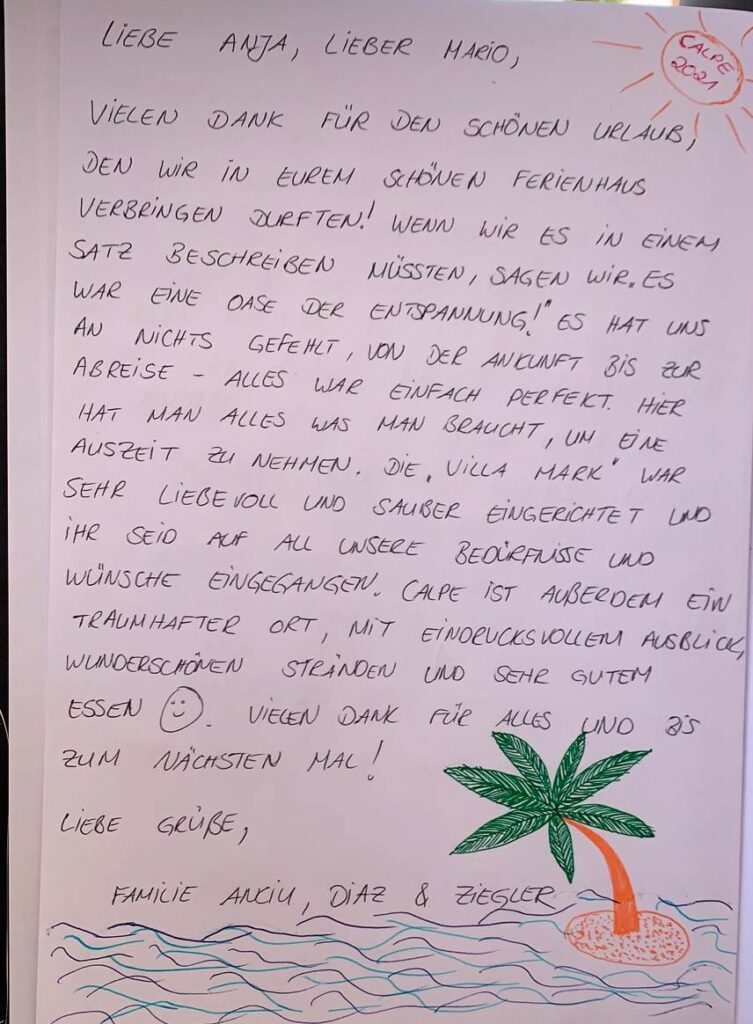 LIEBE ANJA, LIEBER MARIO,
CALPE
2021
VIELEN DANK FÜR DEN SCHÖNEN URLAUB,
DEN WIR IN EUREM SCHÖNEN FERIENHAUS
VERBRINGEN DURFTEN! WENN WIR ES IN EINEM
SATZ BESCHREIBEN MÜSSTEN, SAGEN WIR „ES
WAR EINE OASE DER ENTSPANNUNG!" ES HAT UNS
AN NICHTS GEFEHLT, VON DER ANKUNFT BIS ZUR
ABREISE – ALLES WAR EINFACH PERFEKT. HIER
HAT MAN ALLES WAS MAN BRAUCHT, UM EINE
AUSZEIT ZU NEHMEN. DIE „VILLA MARK" WAR
SEHR LIEBEVOLL UND SAUBER EINGERICHTET UND
IHR SEID AUF ALL UNSERE BEDÜRFNISSE UND
WÜNSCHE EINGEGANGEN. CALPE IST AUßERDEM EIN
TRAUMHAFTER ORT, MIT EINDRUCKSVOLLEM AUSBLICK,
WUNDERSCHÖNEN STRÄNDEN UND SEHR GUTEM
ESSEN. VIELEN DANK FÜR ALLES UND BIS
ZUM NÄCHSTEN MAL!
LIEBE GRÜßE,
FAMILIE , DIAZ & ZIEGLER